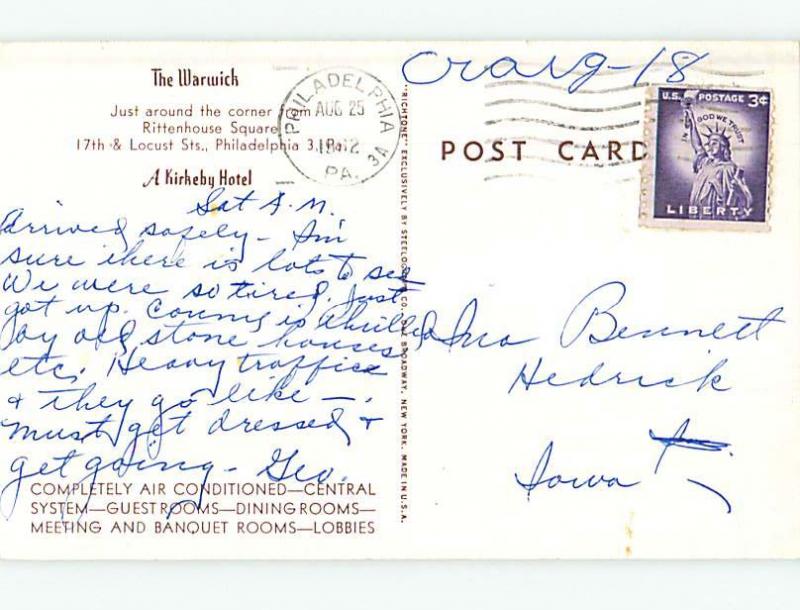 The Warwick
Just around the corner from
Rittenhouse Square
17th & Locust Sts., Philadelphia 3, Pa.
A Kirkeby Hotel
PHILADELPHIA
AUG 25
PA.
3A
Craig-18
U.S. POSTAGE 3¢
IN GOD WE TRUST
LIBERTY
POST CARD
Sat A.M.
Arrived safely - I'm
sure there is lots to see
We were so tired. Just
got up. is thrilled
by old stone houses
etc. Heavy traffic
& they go like —.
Must get dressed &
get going - Geo.
COMPLETELY AIR CONDITIONED—CENTRAL
SYSTEM—GUEST ROOMS—DINING ROOMS—
MEETING AND BANQUET ROOMS—LOBBIES
"RICHTONE" EXCLUSIVELY BY STEELOGRAPH CO., BROADWAY, NEW YORK. MADE IN U.S.A.
Bennett
Hedrick
Iowa